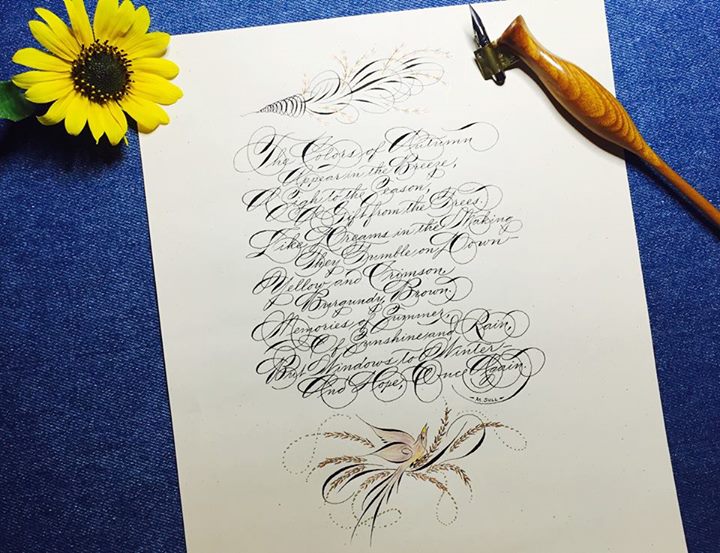 The Colors of Autumn
Appear in the Breeze,
A Sigh to the Season,
A Gift from the Trees.
Like Dreams in the Making
They Tumble on Down—
Yellow and Crimson,
Burgundy, Brown.
Memories of Summer,
Of Sunshine and Rain,
But Windows to Winter—
And Hope, Once Again.
—M. SULL—